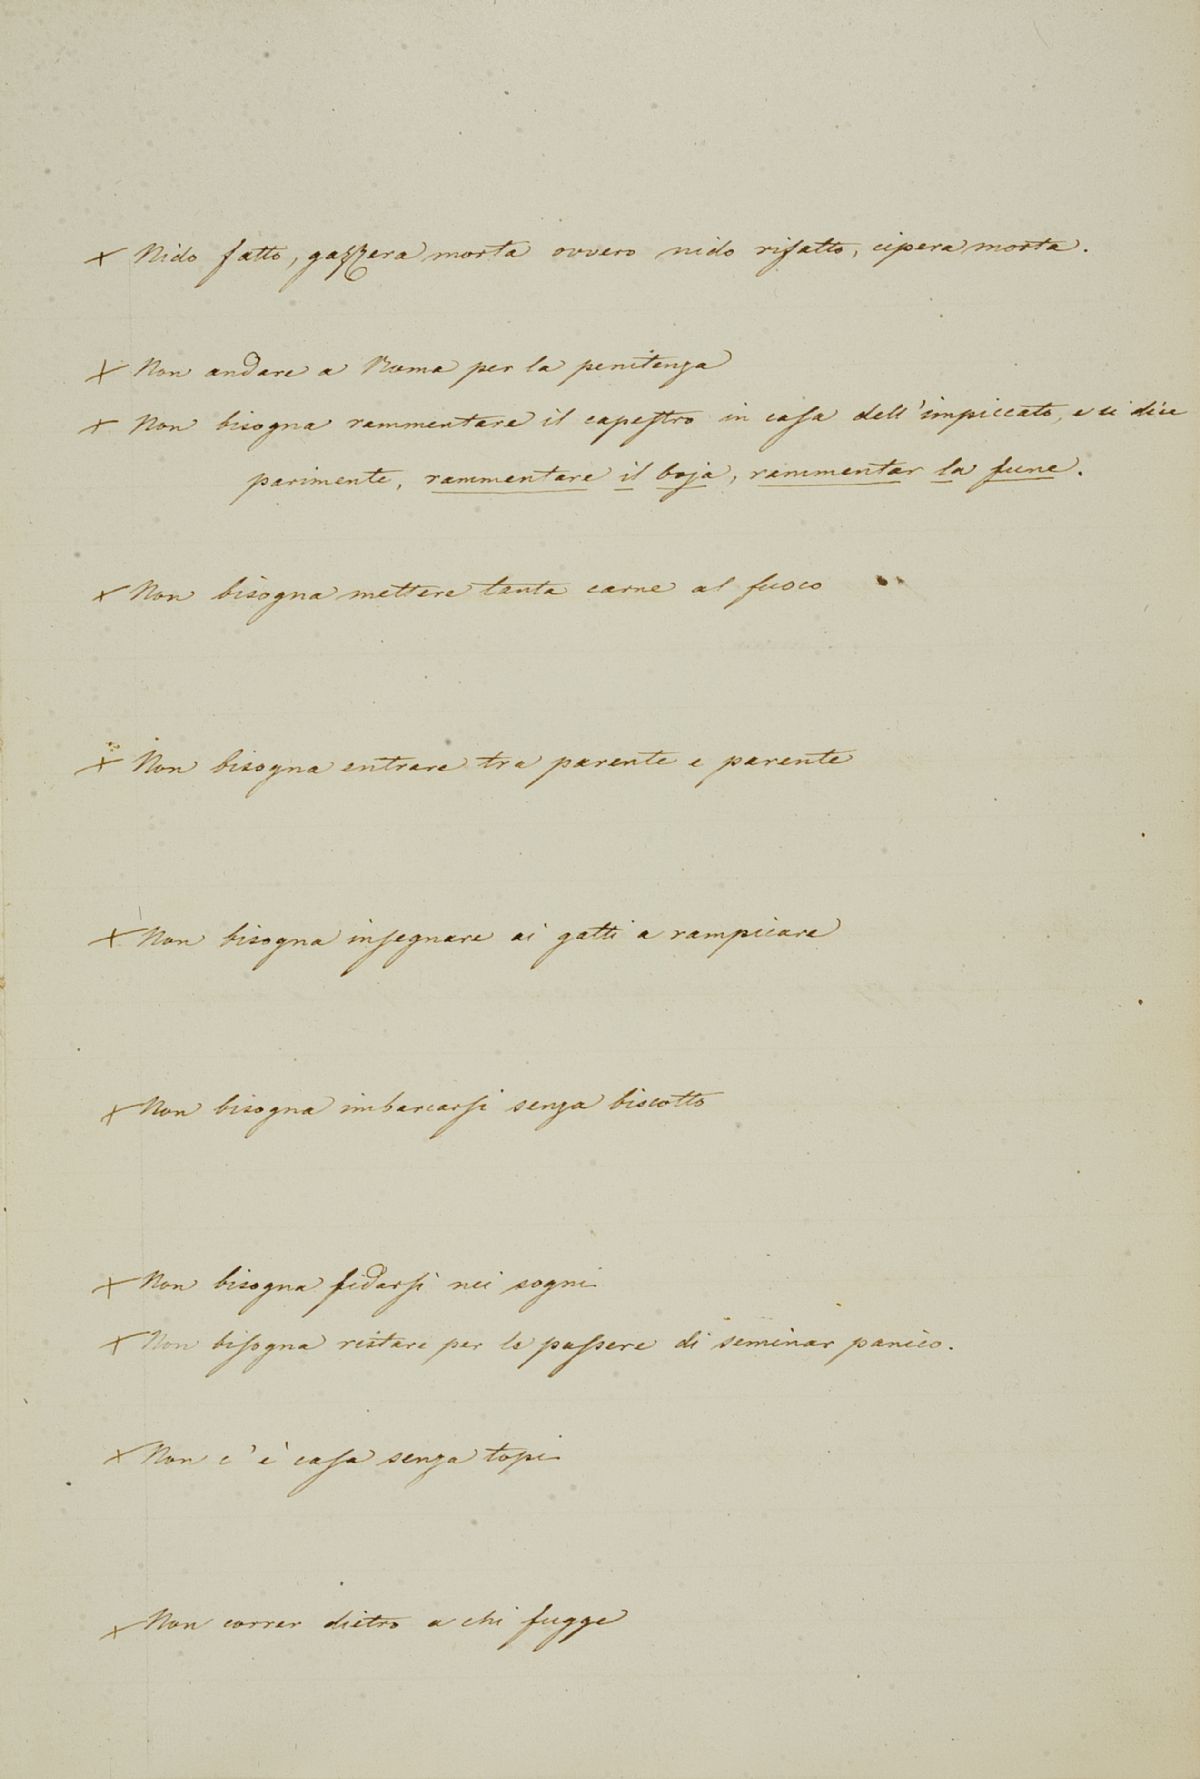 + Nido fatto, gazzera morta ovvero nido rifatto, cipera morta.
+ Non andare a Roma per la penitenza
+ Non bisogna rammentare il capestro in casa dell'impiccato, e si dice
parimente, rammentare il boja, rammentar la fune.
+ Non bisogna mettere tanta carne al fuoco
+ Non bisogna entrare tra parente e parente
+ Non bisogna insegnare ai gatti a rampicare
+ Non bisogna imbarcarsi senza biscotto
+ Non bisogna fidarsi nei sogni
+ Non bisogna ristare per le passere di seminar panico.
+ Non c'è casa senza topi
+ Non correr dietro a chi fugge